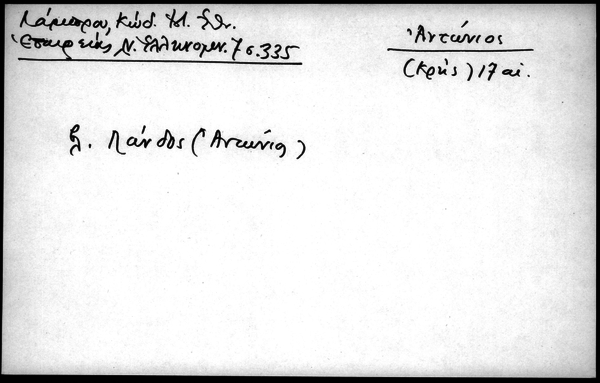 Λάμπρου, Κώδ. Ἱστ. Ἐθν.
Ἑταιρείας, Ν. Ἑλληνομν. 7 σ. 335
Ἀντώνιος
(Κρής) 17 αἰ.
Βλ. Πάνδος (Ἀντώνιος)